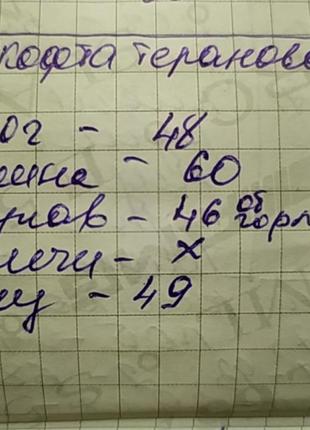 кофта теранова
ог - 48
ина - 60
укав - 46 об горл
лечи - х
иц - 49